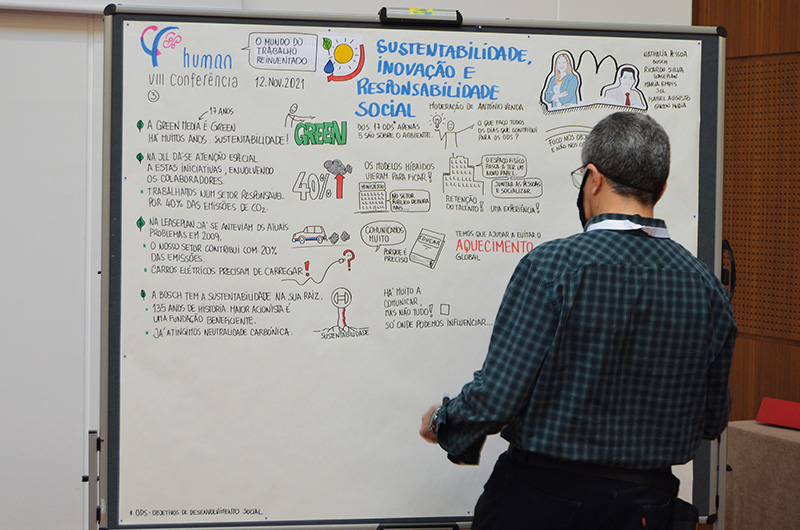 human
VIII Conferência
3
O MUNDO DO
TRABALHO
REINVENTADO
12.Nov.2021
SUSTENTABILIDADE,
INOVAÇÃO E
RESPONSABILIDADE
SOCIAL
MODERAÇÃO DE ANTÓNIO VENDA
NATHALIA PESSOA
BOSCH
RICARDO SILVA
LEASEPLAN
JLL
ISABEL AUGUSTO
GREEN MEDIA
17 ANOS
A GREEN MEDIA É GREEN
HÁ MUITOS ANOS. SUSTENTABILIDADE!
GREEN
DOS 17 ODS* APENAS
5 SÃO SOBRE O AMBIENTE.
O QUE FAÇO TODOS
OS DIAS QUE CONTRIBUI
PARA OS ODS?
E NÃO NOS
NA JLL DÁ-SE ATENÇÃO ESPECIAL
A ESTAS INICIATIVAS, ENVOLVENDO
OS COLABORADORES.
TRABALHAMOS NUM SETOR RESPONSÁVEL
POR 40% DAS EMISSÕES DE CO2.
40%
OS MODELOS HÍBRIDOS
VIERAM PARA FICAR!
MINISTÉRIO
NO SETOR
PÚBLICO DEMORA
MAIS...
O ESPAÇO FÍSICO
PASSA A TER UM
NOVO PAPEL.
JUNTAR AS PESSOAS
E SOCIALIZAR.
RETENÇÃO
DO TALENTO!
UMA EXPERIÊNCIA!
NA LEASEPLAN JÁ SE ANTEVIAM OS ATUAIS
PROBLEMAS EM 2009.
O NOSSO SETOR CONTRIBUI COM 20%
DAS EMISSÕES.
CARROS ELÉTRICOS PRECISAM DE CARREGAR!
?
COMUNICÁMOS
MUITO
PORQUE É
PRECISO
EDUCAR
TEMOS QUE AJUDAR A EVITAR O
AQUECIMENTO
GLOBAL
A BOSCH TEM A SUSTENTABILIDADE NA SUA RAIZ.
135 ANOS DE HISTÓRIA. MAIOR ACIONISTA É
UMA FUNDAÇÃO BENEFICENTE.
JÁ ATINGIMOS NEUTRALIDADE CARBÓNICA.
SUSTENTABILIDADE
HÁ MUITO A
COMUNICAR.
MAS NÃO TUDO!
SÓ ONDE PODEMOS INFLUENCIAR...
* ODS - OBJETIVOS DE DESENVOLVIMENTO SOCIAL